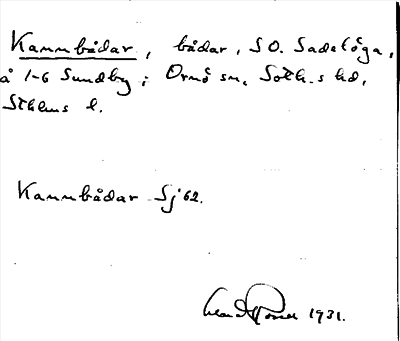 Kannbådar, bådar, SO. Sadelöga,
å 1-6 Sundby; Ornö sn, Soth.s hd,
Sthlms l.
Kannbådar Sj 62.
1931.